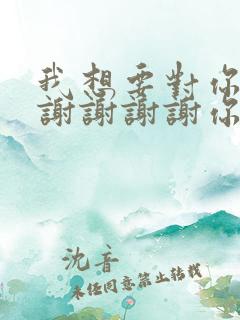 我想要對你
謝謝謝謝你
沈音
未任同意禁止转载